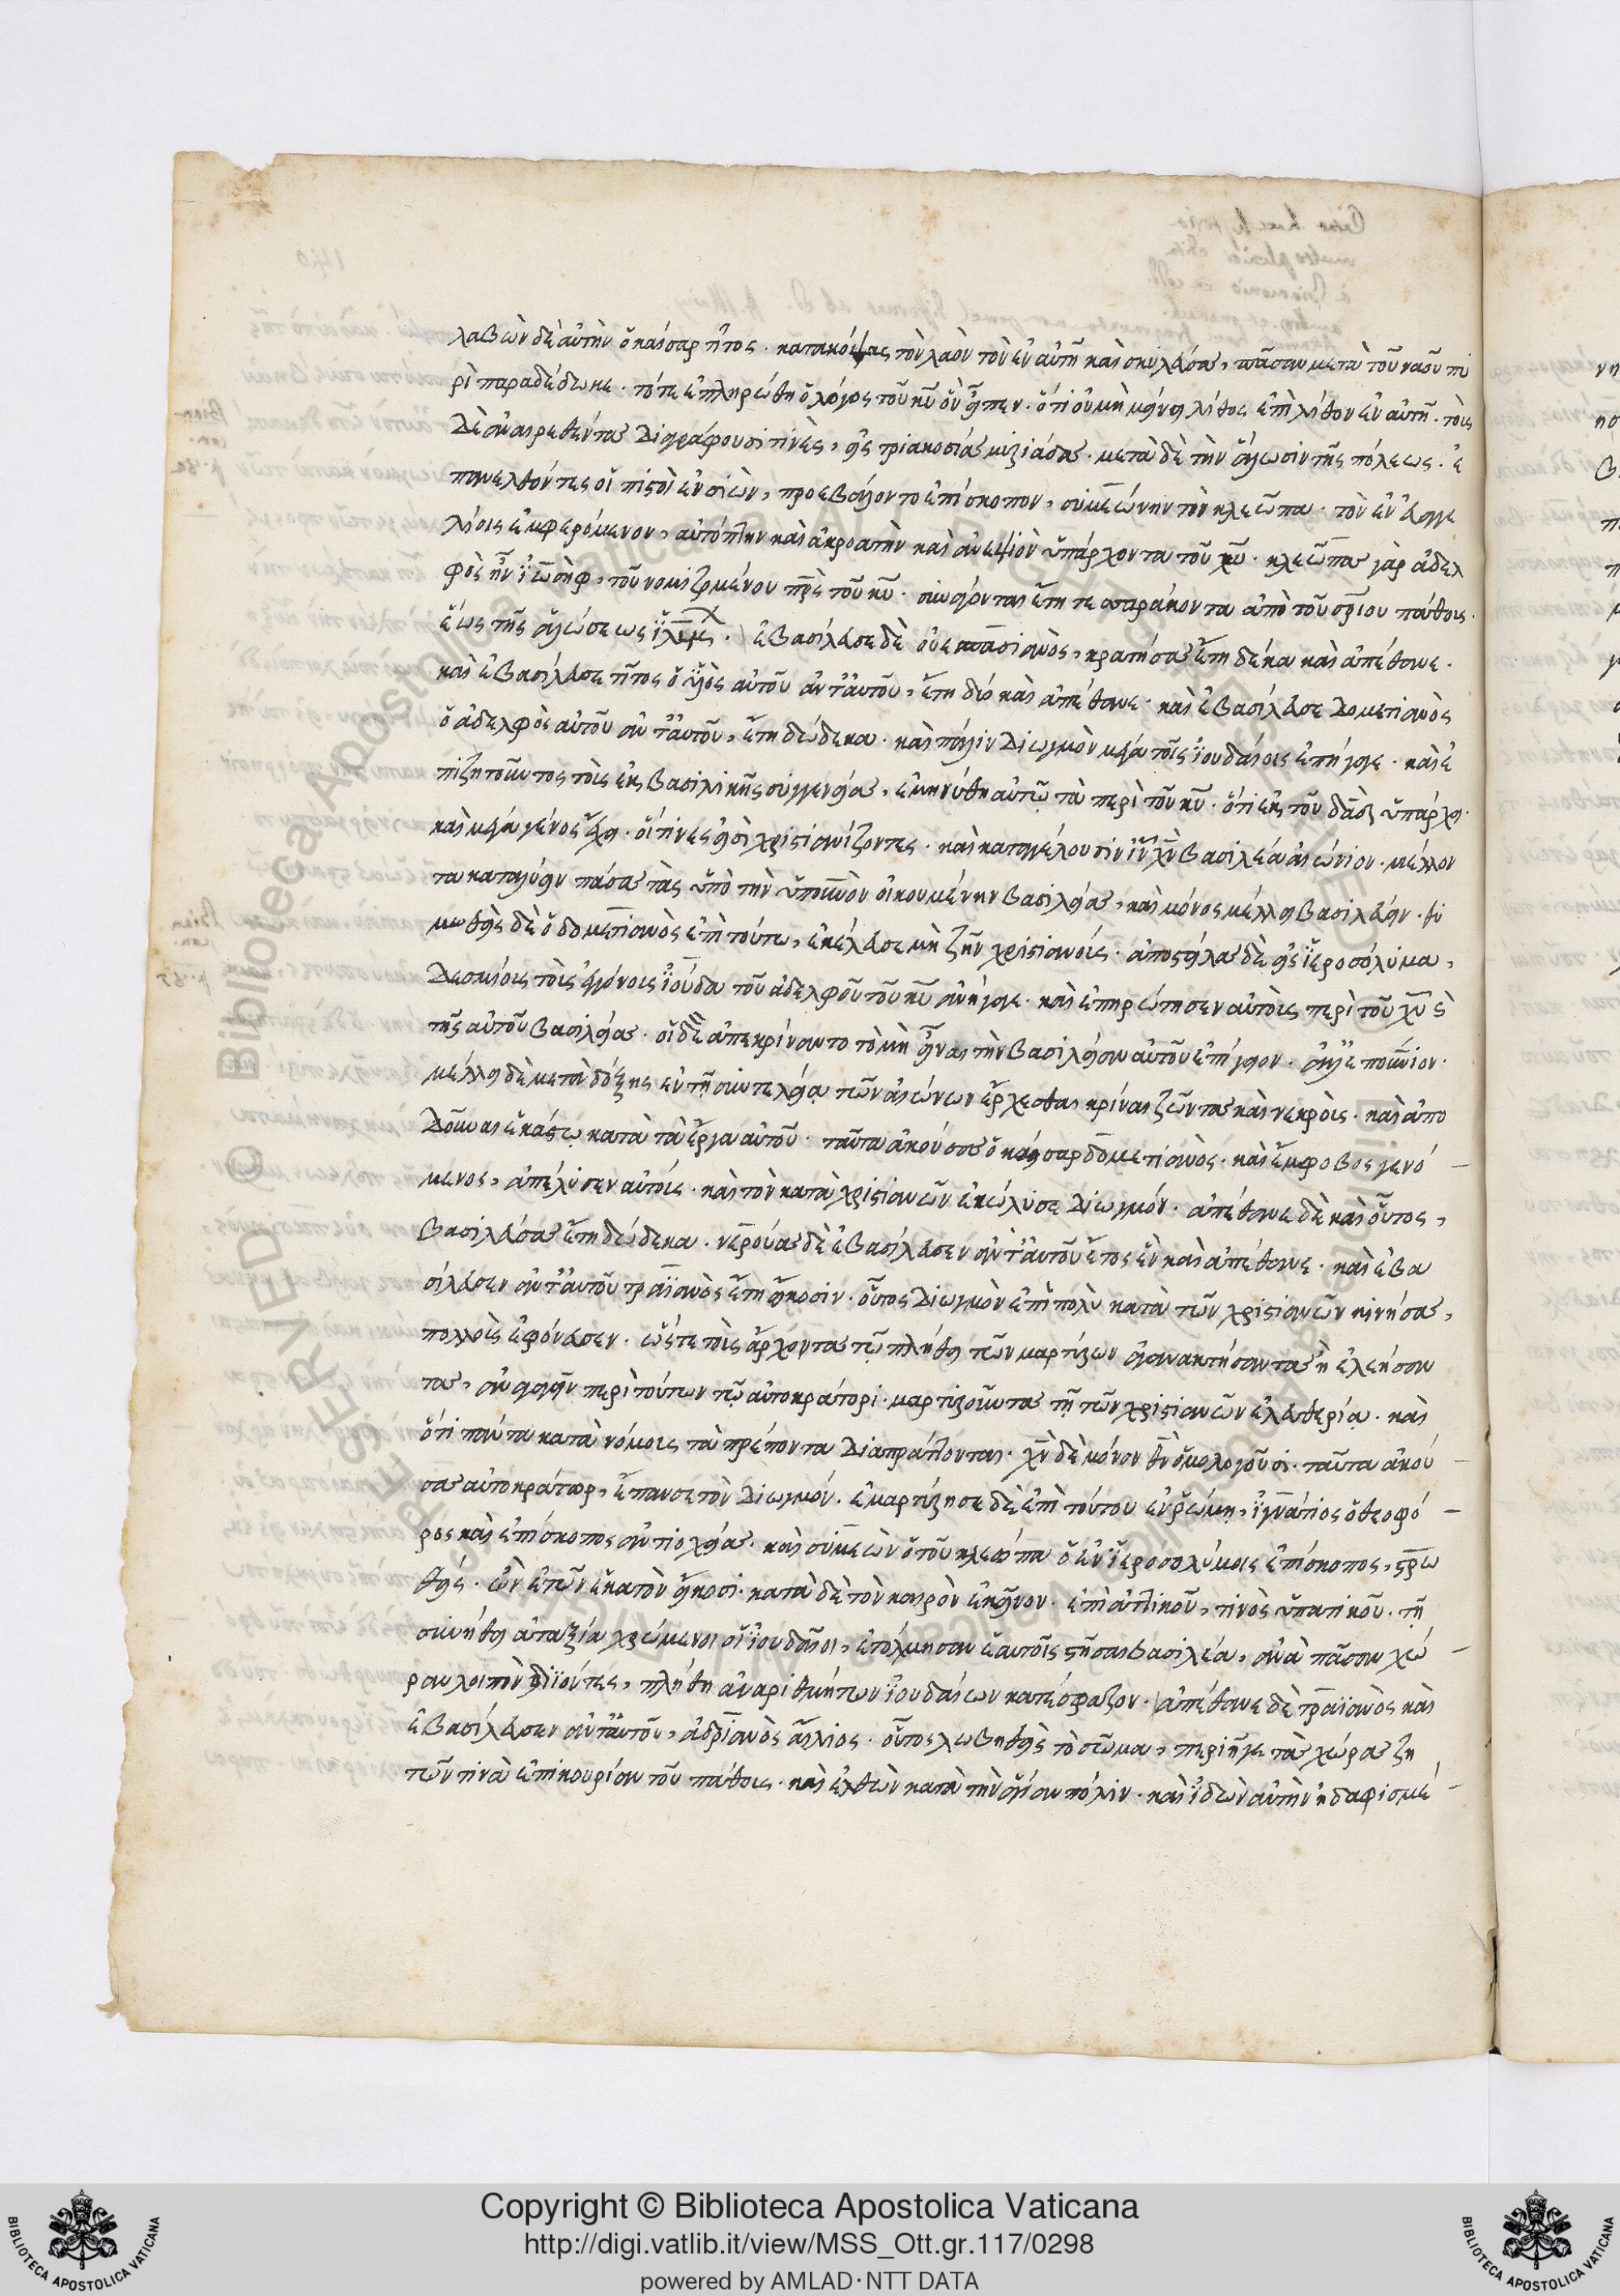 λαβὼν δὲ αὐτὴν ὁ καίσαρ τίτος· κατακόψας τὸν λαὸν τὸν ἐν αὐτῇ καὶ σκυλεύσας, πᾶσαν μετὰ τοῦ ναοῦ πυ
ρὶ παραδέδωκε· τότε ἐπληρώθη ὁ λόγος τοῦ κυ ὃν εἶπεν· ὅτι οὐ μὴ μείνῃ λίθος ἐπὶ λίθον ἐν αὐτῇ· τοὺς
δὲ ἀναιρεθέντας διαγράφουσί τινὲς, εἰς τριακοσίας μυριάδας· μετὰ δὲ τὴν ἅλωσιν τῆς πόλεως· ἐ
πανελθόντες οἱ πιστοὶ ἐν σιὼν, προεβάλοντο ἐπίσκοπον, συμεώνην τὸν κλεῶπα· τὸν ἐν εὐαγγε
λίοις ἐμφερόμενον, αὐτόπτην καὶ ἀκροατὴν καὶ ἀνεψιὸν ὑπάρχοντα τοῦ χυ· κλεῶπα γὰρ ἀδελ
φὸς ἦν ἰωσὴφ, τοῦ νομιζομένου πρς τοῦ κυ· συνάγονται ἔτη τεσσαράκοντα ἀπὸ τοῦ σριου πάθους·
ἕως τῆς ἁλώσεως ἱλημ· ἐβασίλευσε δὲ οὐεσπασιανὸς, κρατήσας ἔτη δέκα καὶ ἀπέθανε·
καὶ ἐβασίλευσε τίτος ὁ υἱὸς αὐτοῦ ἀντ' αὐτοῦ, ἔτη δύο καὶ ἀπέθανε· καὶ ἐβασίλευσε δομετιανὸς
ὁ ἀδελφὸς αὐτοῦ ἀντ' αὐτοῦ, ἔτη δώδεκα· καὶ πάλιν διωγμὸν μέγα τοῖς ἰουδαίοις ἐπήγαγε· καὶ ἐ
πιζητοῦντος τοὺς ἐκ βασιλικῆς συγγενείας, ἐμηνύθη αὐτῷ τὰ περὶ τοῦ κυ· ὅτι ἐκ τοῦ δαδ ὑπάρχει·
καὶ μέγα γένος ἔχει· οἵτινες εἰσὶ χριστιανίζοντες· καὶ καταγγέλουσιν ιν χν βασιλέα αἰώνιον· μέλλον
τα καταλύειν πάσας τὰς ὑπὸ τὴν ὑπουνὸν οἰκουμένην βασιλείας, καὶ μόνος μέλλει βασιλεύειν· θυ
μωθεὶς δὲ ὁ δομετιανὸς ἐπὶ τούτῳ, ἐκέλευσε μὴ ζῆν χριστιανούς· ἀποστείλας δὲ εἰς ἱεροσόλυμα,
δεσμίους τοὺς ἐγγόνους ἰούδα τοῦ ἀδελφοῦ τοῦ κυ ἀνήγαγε· καὶ ἐπηρώτησεν αὐτοὺς περὶ τοῦ χυ καὶ
τῆς αὐτοῦ βασιλείας· οἱ δὲ ἀπεκρίναντο τὸ μὴ εἶναι τὴν βασιλείαν αὐτοῦ ἐπίγειον· ἀλλ' ἐπουνιον·
μέλλει δὲ μετὰ δόξης ἐν τῇ συντελείᾳ τῶν αἰώνων ἔρχεσθαι κρίναι ζῶντας καὶ νεκρούς· καὶ ἀπο
δοῦναι ἑκάστῳ κατὰ τὰ ἔργα αὐτοῦ· ταῦτα ἀκούσας ὁ καίσαρ δομετιανὸς· καὶ ἔμφοβος γενό
μενος, ἀπέλυσεν αὐτούς· καὶ τὸν κατὰ χριστιανῶν ἐκώλυσε διωγμόν· ἀπέθανε δὲ καὶ οὗτος,
βασιλεύσας ἔτη δώδεκα· νερούας δὲ ἐβασίλευσεν ἀντ' αὐτοῦ ἔτος ἓν καὶ ἀπέθανε· καὶ ἐβα
σίλευσεν ἀντ' αὐτοῦ τραϊανὸς ἔτη εἴκοσιν· οὗτος διωγμὸν ἐπὶ πολὺ κατὰ τῶν χριστιανῶν κινήσας,
πολλοὺς ἐφόνευσεν· ὥστε τοὺς ἄρχοντας τῷ πλήθει τῶν μαρτύρων ἀγανακτήσαντας ἢ ἐλεήσαν
τας, ἀναγαγεῖν περὶ τούτων τῷ αὐτοκράτορι· μαρτυροῦντας τῇ τῶν χριστιανῶν ἐλευθερίᾳ· καὶ
ὅτι πάντα κατὰ νόμους τὰ πρέποντα διαπράττονται· χν δὲ μόνον θν ὁμολογοῦσι· ταῦτα ἀκού
σας αὐτοκράτωρ, ἔπαυσε τὸν διωγμόν· ἐμαρτύρησε δὲ ἐπὶ τούτου ἐν ῥώμῃ, ἰγνάτιος ὁ θεοφό
ρος καὶ ἐπίσκοπος ἀντιοχείας· καὶ συμεὼν ὁ τοῦ κλεώπα ὁ ἐν ἱεροσολύμοις ἐπίσκοπος, σρω
θείς· ὢν ἐτῶν ἑκατὸν εἴκοσι· κατὰ δὲ τὸν καιρὸν ἐκεῖνον· ἐπὶ ἀττικοῦ, τινὸς ὑπατικοῦ· τῇ
συνήθει ἀταξίᾳ χρώμενοι οἱ ἰουδαῖοι, ἐτόλμησαν ἑαυτοῖς στῆσαι βασιλέα, ἀνὰ πᾶσαν χώ
ραν λοιπὸν διϊόντες, πλήθη ἀναρίθμητων ἰουδαίων κατέσφαζον· ἀπέθανε δὲ τραϊανὸς καὶ
ἐβασίλευσεν ἀντ' αὐτοῦ, ἀδριανὸς αἴλιος· οὗτος λωβηθεὶς τὸ σῶμα, περιῆγε τὰς χώρας ζη
τῶν τινὰ ἐπικουρίαν τοῦ πάθους· καὶ ἐλθὼν κατὰ τὴν ἁγίαν πόλιν· καὶ ἰδὼν αὐτὴν ἠδαφισμέ
Copyright © Biblioteca Apostolica Vaticana
http://digi.vatlib.it/view/MSS_Ott.gr.117/0298
powered by AMLAD·NTT DATA
BIBLIOTECA APOSTOLICA VATICANA
BIBLIOTECA APOSTOLICA VATICANA